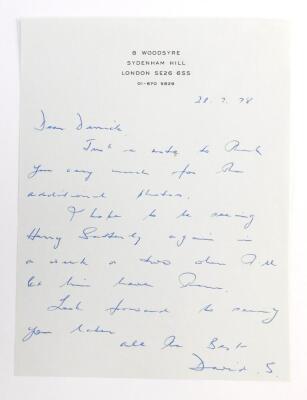 8 WOODSYRE
SYDENHAM HILL
LONDON SE26 6SS
01-670 5829
28.7.78
Dear Derrick.
Just a note to thank
you very much for the
additional photos.
I hope to be seeing
Harry again in
a week or two when I'll
let him have them.
Look forward to seeing
you later
All the Best
David. S.